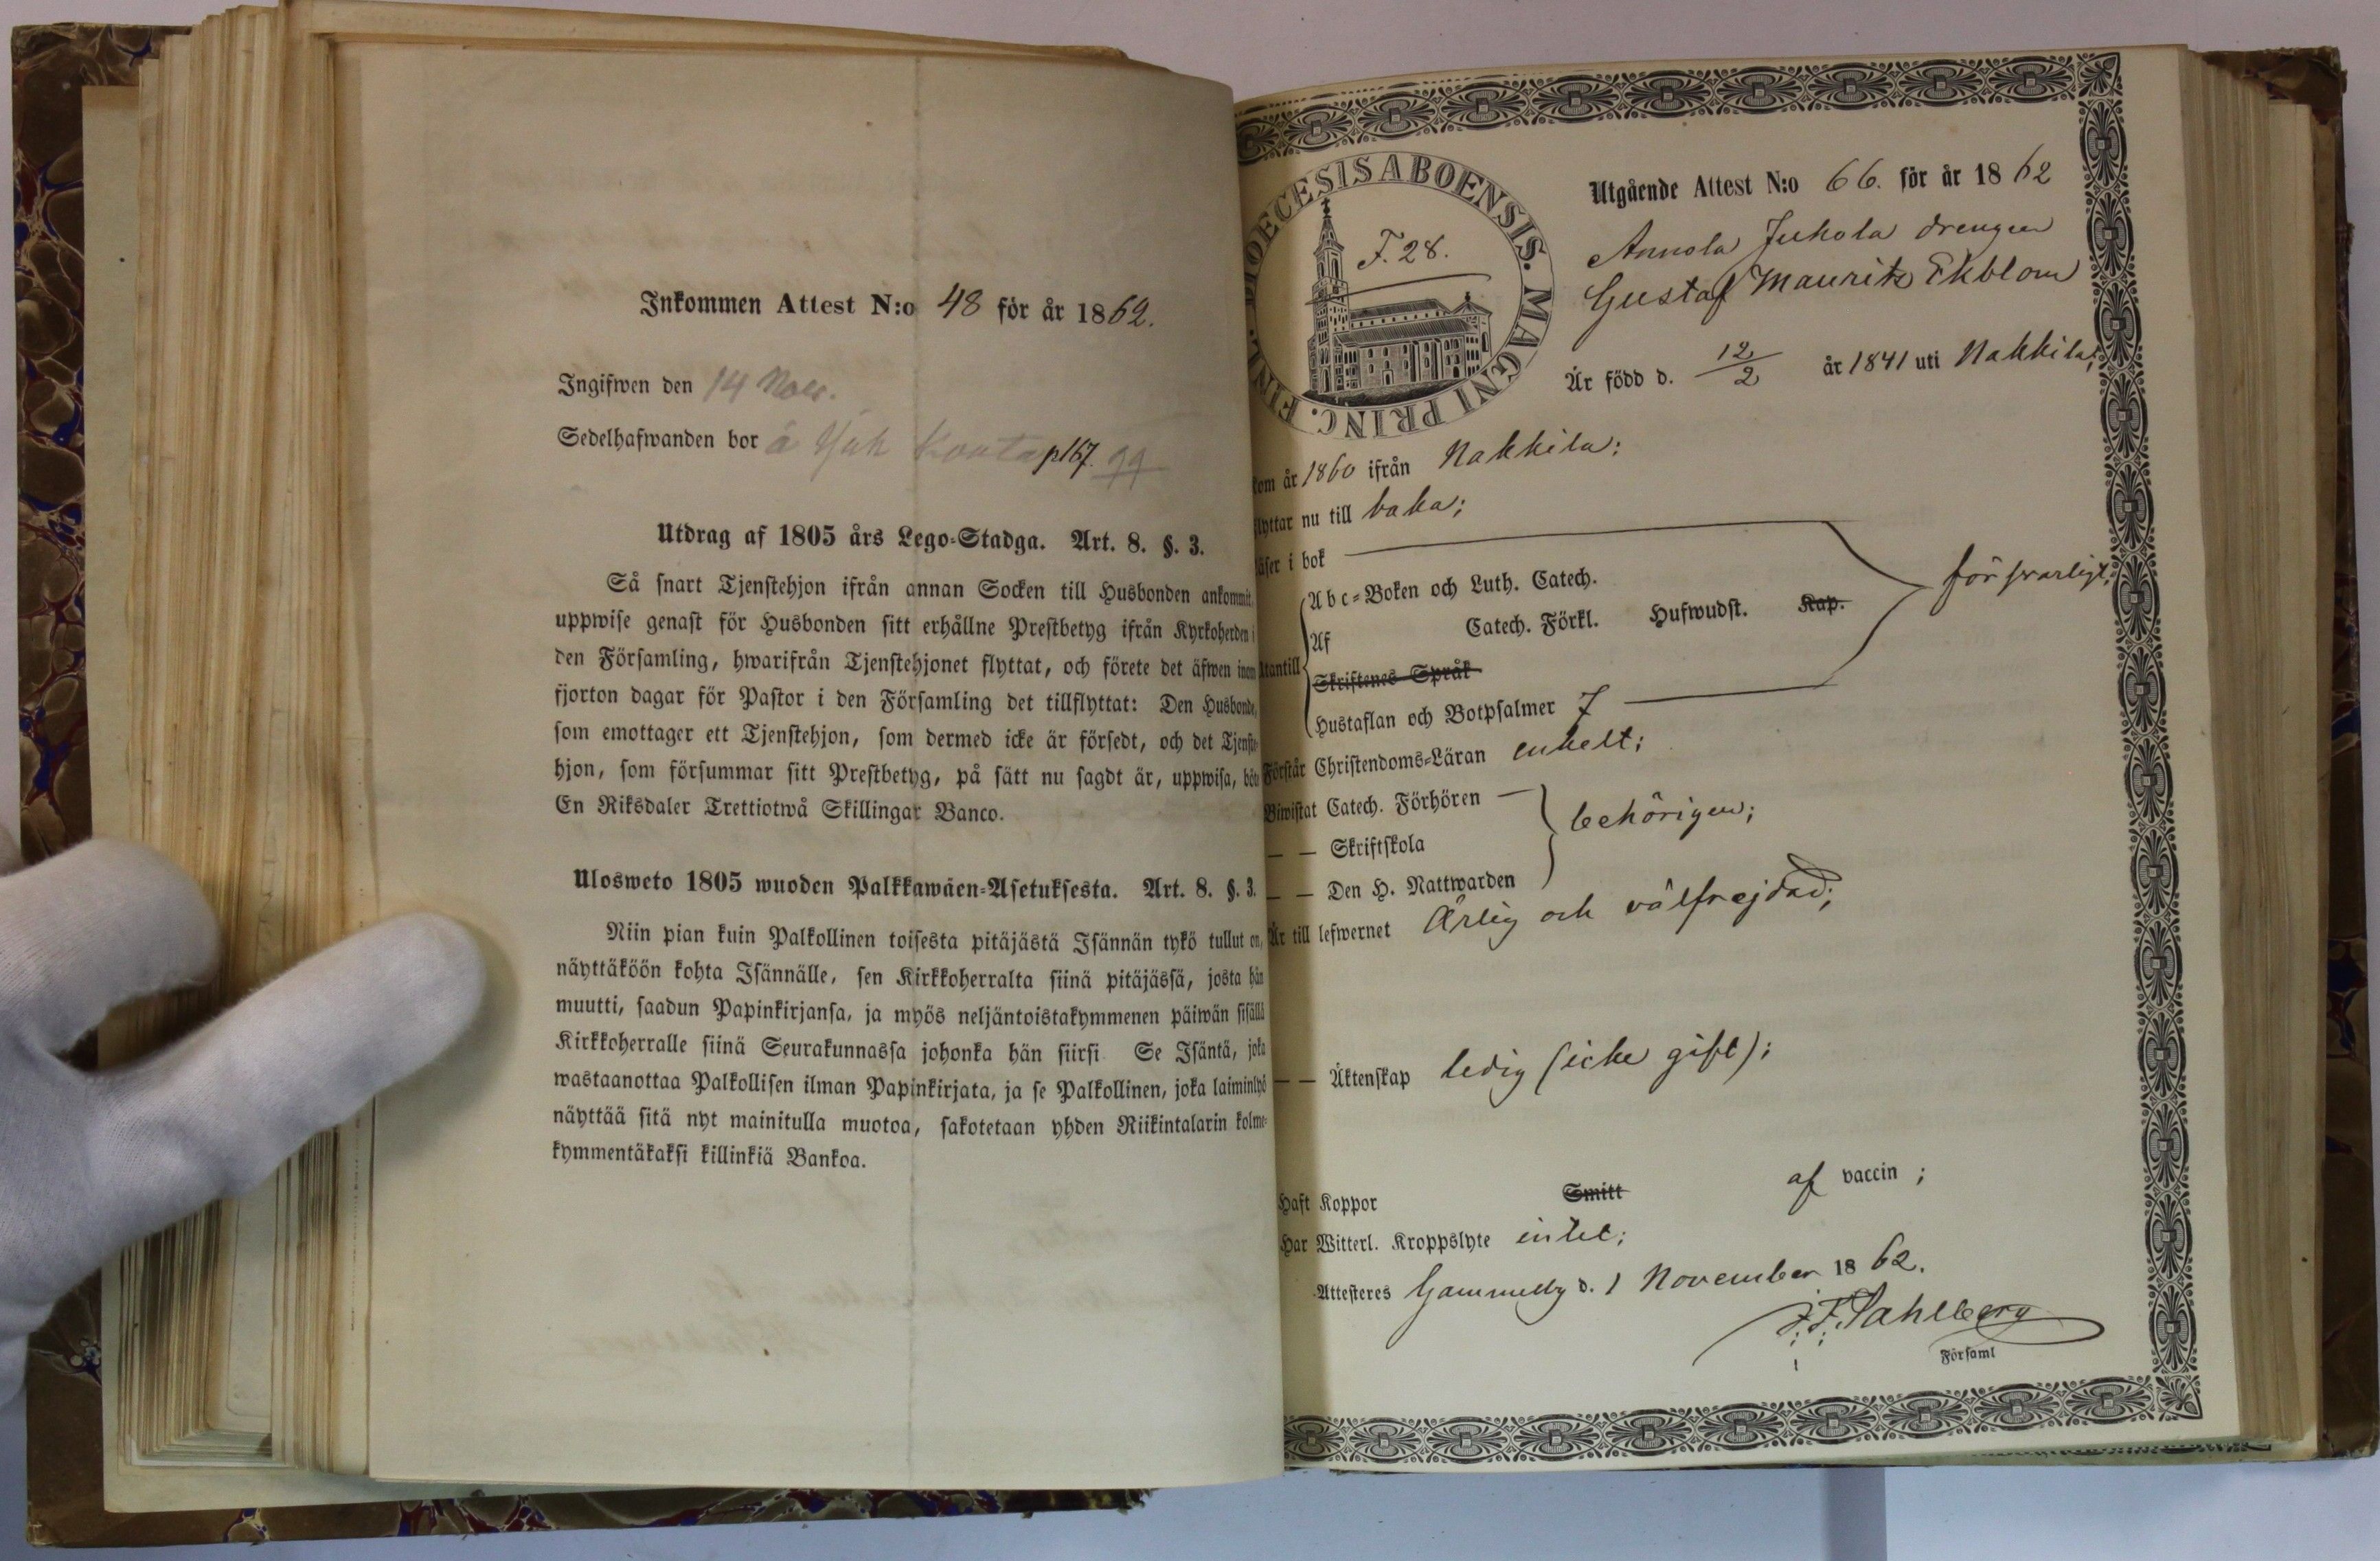 Inkommen Attest N:o 48 för år 1862.
Ingifwen den 14 Nov.
Sedelhafwanden bor å p167. 99
Utdrag af 1805 års Lego-Stadga. Art. 8. §. 3.
Så snart Tjenstehjon ifrån annan Socken till Husbonden ankommit,
uppwise genast för Husbonden sitt erhållne Prestbetyg ifrån Kyrkoherden i
den Församling, hwarifrån Tjenstehjonet flyttat, och förete det äfwen inom
fjorton dagar för Pastor i den Församling det tillflyttat: Den Husbonde,
som emottager ett Tjenstehjon, som dermed icke är försedt, och det Tjenste-
hjon, som försummar sitt Prestbetyg, på sätt nu sagdt är, uppwisa, böte
En Riksdaler Trettiotwå Skillingar Banco.
Ulosweto 1805 wuoden Palkkawäen-Asetuksesta. Art. 8. §. 3.
Niin pian kuin Palkollinen toisesta pitäjästä Isännän tykö tullut on,
näyttäköön kohta Isännälle, sen Kirkkoherralta siinä pitäjässä, josta hän
muutti, saadun Papinkirjansa, ja myös neljäntoistakymmenen päiwän sisällä
Kirkkoherralle siinä Seurakunnassa johonka hän siirsi Se Isäntä, joka
wastaanottaa Palkollisen ilman Papinkirjata, ja se Palkollinen, joka laiminlyö
näyttää sitä nyt mainitulla muotoa, sakotetaan yhden Riikintalarin kolme-
kymmentäkaksi killinkiä Bankoa.
DIOECESIS ABOENSIS. MAGNI PRINC. FINL.
F. 28.
Utgående Attest N:o 66. för år 1862
Annola Juhola drengen
Gustaf Maurits Ekblom
Är född d. 12/2 år 1841 uti Nakkila;
kom år 1860 ifrån Nakkila;
flyttar nu till baka;
läser i bok
Abc-Boken och Luth. Catech.
Af Catech. Förkl. Hufwudst. Kap. försvarligt;
Utantill
Skriftenes Språk
Hustaflan och Botpsalmer 7
Förstår Christendoms-Läran enkelt;
Biwistat Catech. Förhören
— — Skriftskola behörigen;
— — Den H. Nattwarden
Är till lefwernet Ärlig och välfrejdad;
— — Äktenskap ledig (icke gift);
Haft Koppor Smitt af vaccin ;
Har Witterl. Kroppslyte intet;
Attesteres Gammelby d. 1 November 1862.
J. F. Sahlberg
Församl